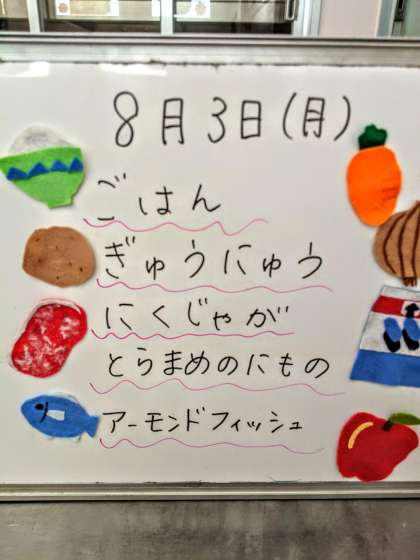 8月3日(月)
ごはん
ぎゅうにゅう
にくじゃが
とらまめのにもの
アーモンドフィッシュ